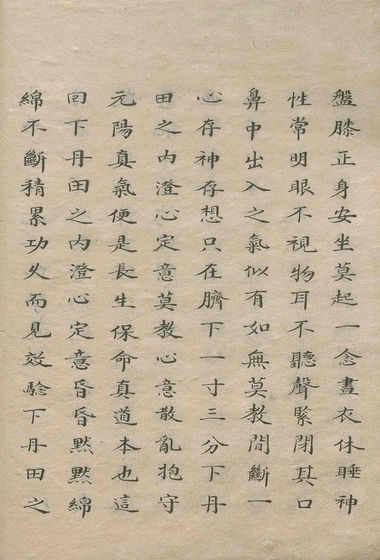 盤膝正身安坐莫起一念晝衣休睡神
性常明眼不視物耳不聽聲緊閉其口
鼻中出入之氣似有如無莫教間斷一
心存神存想只在臍下一寸三分下丹
田之内澄心定意莫教心意散亂抱守
元陽真氣便是長生保命真道本也這
囘下丹田之内澄心定意昏昏黙黙綿
綿不斷積累功久而見效驗下丹田之